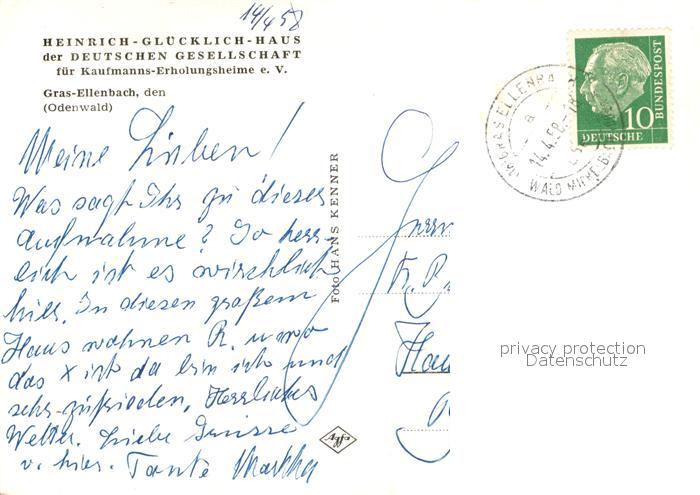 14/4 58
HEINRICH-GLÜCKLICH-HAUS
der DEUTSCHEN GESELLSCHAFT
für Kaufmanns-Erholungsheime e. V.
Gras-Ellenbach, den
(Odenwald)
Meine Lieben!
Was sagt Ihr zu dieser
Aufnahme? So herr-
lich ist es wirklich
hier. In diesem großem
Haus wohnen R. u. wo
das x ist da bin ich und
sehr zufrieden. Herrliches
Wetter. Liebe Grüsse
v. hier. Tante Martha
Foto HANS KENNER
Agfa
DEUTSCHE
BUNDESPOST
10
GRAS ELLENBA
14.4.58
WALD
privacy protection
Datenschutz